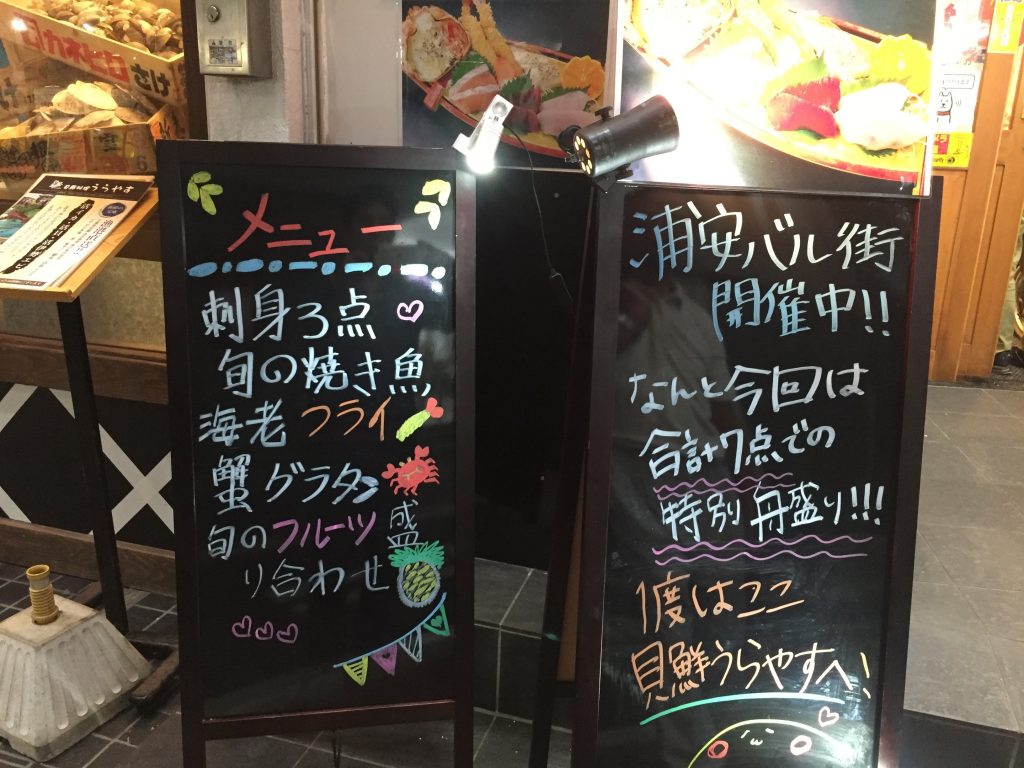 メニュー
刺身3点
旬の焼き魚
海老フライ
蟹グラタン
旬のフルーツ盛
り合わせ
浦安バル街
開催中!!
なんと今回は
合計7点での
特別舟盛り!!!
1度はここ
貝鮮うらやすへ!
うらやす
さけ